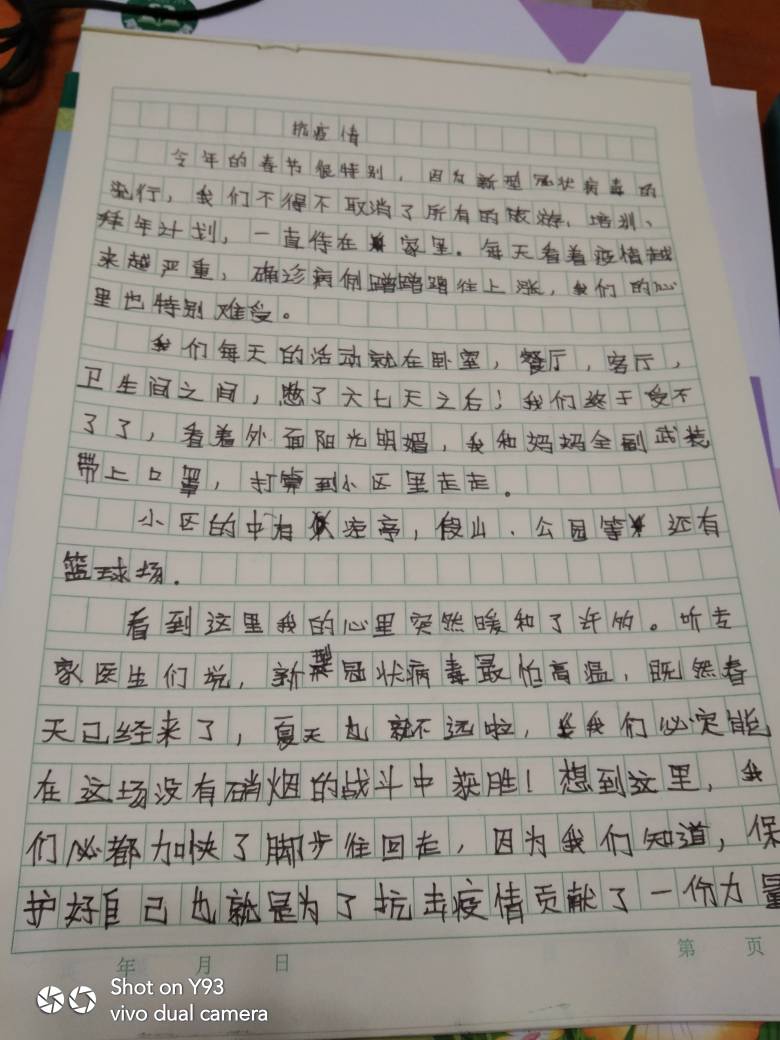 抗疫情
今年的春节很特别，因为新型冠状病毒的
流行，我们不得不取消了所有的旅游、培训、
拜年计划，一直待在家里。每天看着疫情越
来越严重，确诊病例蹭蹭蹭往上涨，我们的心
里也特别难受。
我们每天的活动就在卧室，餐厅，客厅，
卫生间之间，憋了六七天之后！我们终于受不
了了，看着外面阳光明媚，我和妈妈全副武装
带上口罩，打算到小区里走走。
小区的中有凉亭，假山、公园等还有
篮球场.
看到这里我的心里突然暖和了许多。听专
家医生们说，新型冠状病毒最怕高温，既然春
天已经来了，夏天也就不远啦，我们必定能
在这场没有硝烟的战斗中获胜！想到这里，我
们必都加快了脚步往回走，因为我们知道，保
护好自己也就是为了抗击疫情贡献了一份力量
年 月 日
第 页
Shot on Y93
vivo dual camera